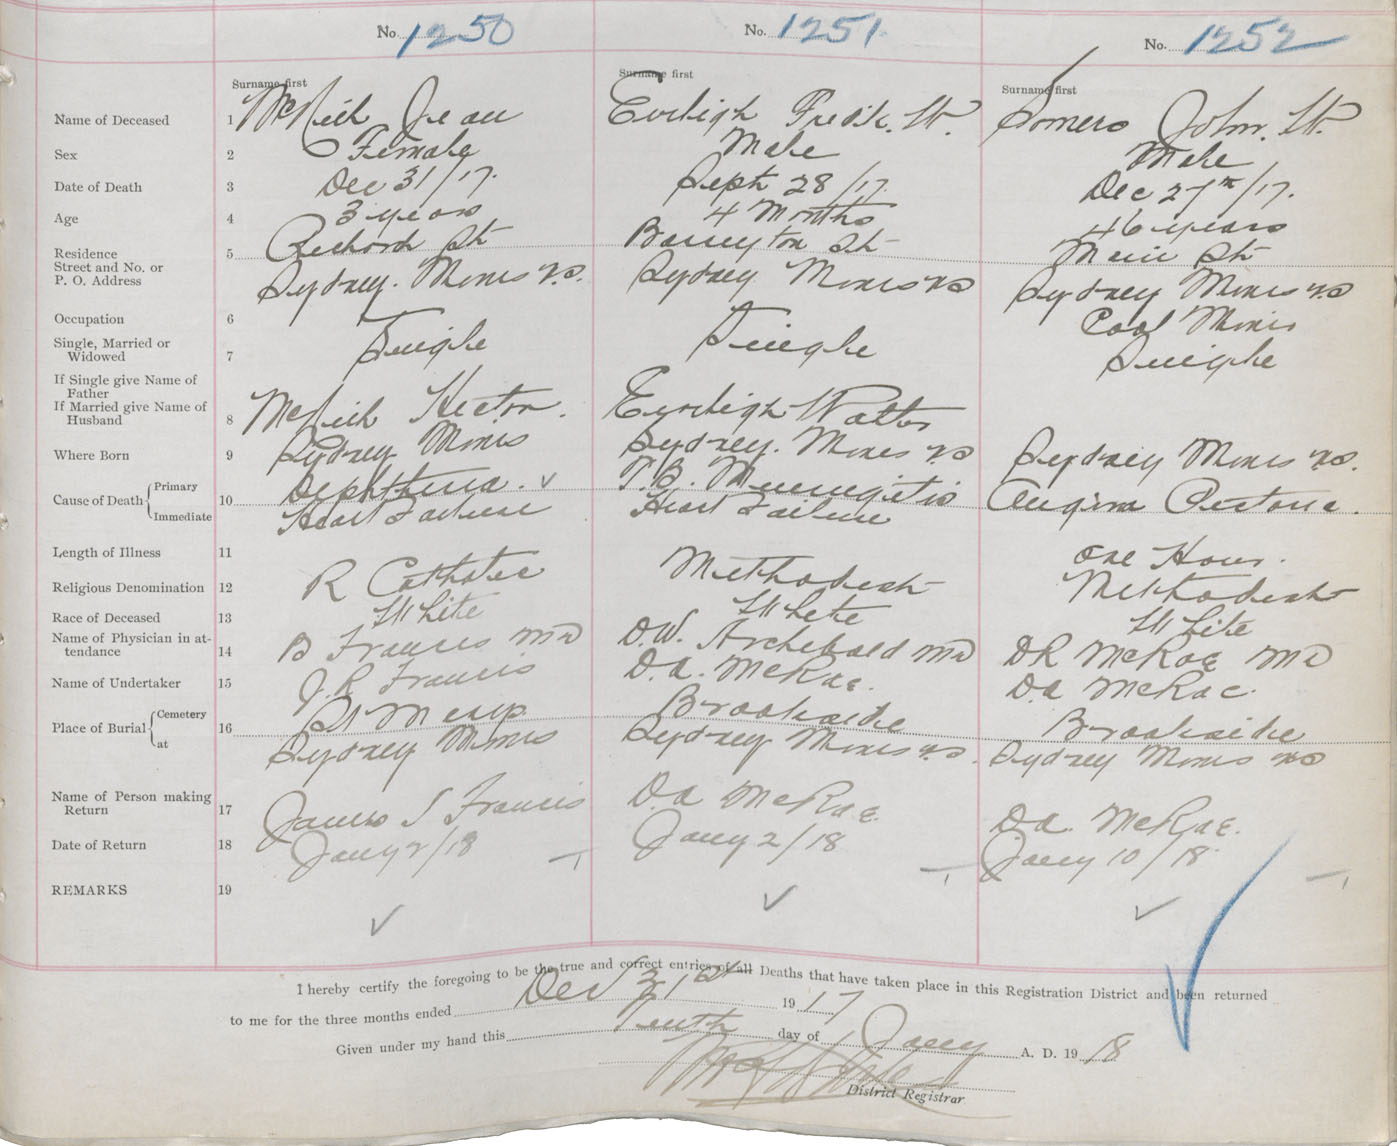 No. 1250 No. 1251. No. 1252
Surname first Surname first Surname first
Name of Deceased 1 McNeil Jean Eveleigh Fredk. W. Somers John. W.
Sex 2 Female Male Male
Date of Death 3 Dec 31/17. Sept 28/17. Dec 27th/17.
Age 4 3 years 4 Months 46 years
Residence 5 St Barrington St Main St
Street and No. or
P. O. Address Sydney. Mines N.S. Sydney Mines NS Sydney Mines N.S
Occupation 6 Coal Miner
Single, Married or
Widowed 7 Single Single Single
If Single give Name of
Father
If Married give Name of
Husband 8 McNeil Hector. Eveleigh Walter
Where Born 9 Sydney Mines Sydney. Mines N.S Sydney Mines N.S.
Cause of Death Primary 10 Diphtheria. T.B. Meningitis Angina Pectoris.
Immediate Heart Failure Heart Failure
Length of Illness 11 One Hour.
Religious Denomination 12 R Catholic Methodist Methodist
Race of Deceased 13 White White White
Name of Physician in at-
tendance 14 B Francis MD D.W. Archibald MD DR McRae MD
Name of Undertaker 15 J.R Francis D.A. McRae. D.A McRae.
Place of Burial Cemetery 16 St Marys Brookside Brookside
at Sydney Mines Sydney Mines N.S. Sydney Mines NS
Name of Person making
Return 17 James S Francis D.A McRae. D.A. McRae.
Date of Return 18 Jany 2/18 Jany 2/18 Jany 10/18
REMARKS 19
I hereby certify the foregoing to be the true and correct entries of all Deaths that have taken place in this Registration District and been returned
to me for the three months ended Dec 31st 1917
Given under my hand this Tenth day of Jany A. D. 1918
District Registrar